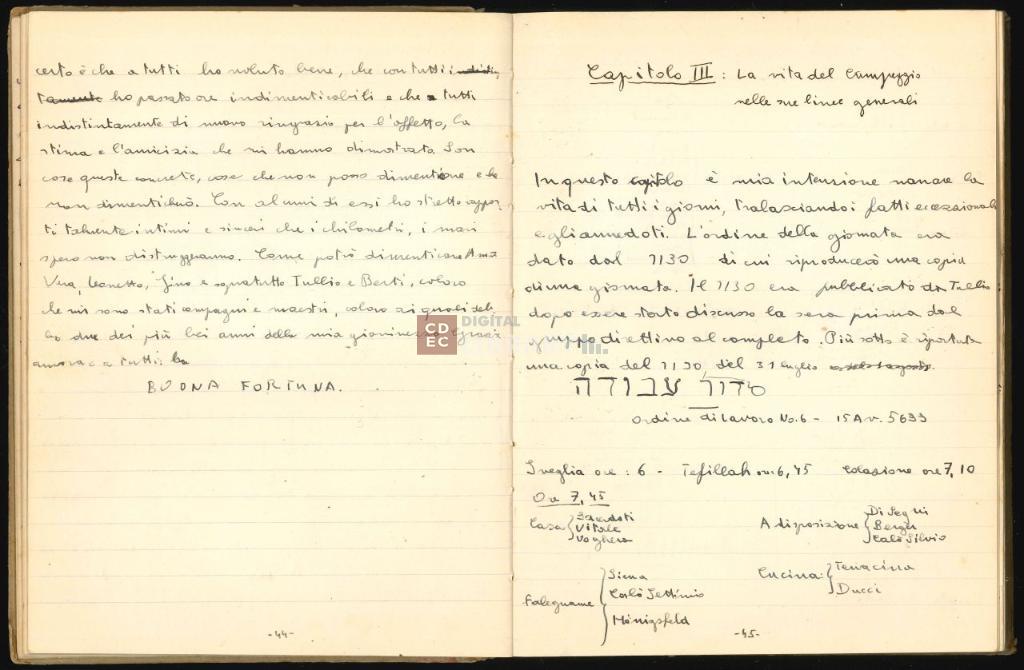 certo è che a tutti ho voluto bene, che con tutti indistin
tamente ho passato ore indimenticabili e che a tutti
indistintamente di nuovo ringrazio per l'affetto, la
stima e l'amicizia che mi hanno dimostrata. Son
cose queste concrete, cose che non posso dimenticare e che
non dimenticherò. Con alcuni di essi ho stretto rappor-
ti talmente intimi e sinceri che i chilometri, i mari
spero non distruggeranno. Come potrò dimenticare
Vera, Leonetto, Gino e sopratutto Tullio e Berti, coloro
che mi sono stati compagni e maestri, coloro ai quali deb
bo due dei più bei anni della mia giovinezza. Grazie
ancora a tutti:
BUONA FORTUNA.
-44-
Capitolo III : La vita del Campeggio
nelle sue linee generali
In questo capitolo è mia intenzione narrare la
vita di tutti i giorni, tralasciando i fatti eccezionali
e gli anneddoti. L'ordine della giornata era
dato dal סדר di cui riprodurrò una copia
di una giornata. Il סדר era pubblicato da Tullio
dopo essere stato discusso la sera prima dal
gruppo direttivo al completo. Più sotto è riportata
una copia del סדר del 31 luglio
סדור עבודה
Ordine di lavoro No. 6 - 15 Av. 5633
Sveglia ore : 6 - Tefillah ore 6,45 Colazione ore 7,10
Ore 7,45
Casa { Sacerdoti
Vitale
Voghera
A disposizione { Di Segni
Berger
Calò Silvio
Falegname { Siena
Calò Settimio
Mönigsfeld
Cucina: { Terracina
Ducci
-45-
CDEC DIGITAL